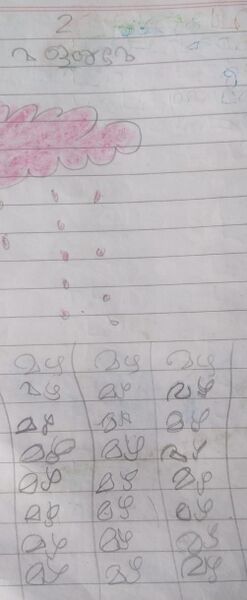 2
മഴ മഴ മഴ
മഴ മഴ മഴ
മഴ മഴ മഴ
മഴ മഴ മഴ
മഴ മഴ മഴ
മഴ മഴ മഴ
മഴ മഴ മഴ
മഴ മഴ മഴ